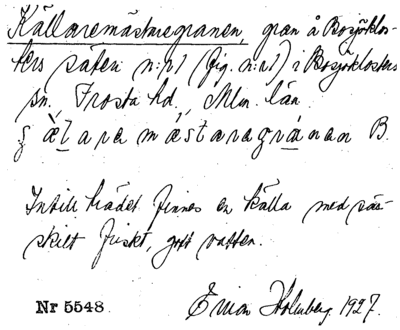 Källaremästaregranen, gran å Bosjöklos-
ters säteri n:r 1 (fig. n:r 1) i Bosjöklosters
sn, Frosta hd, Mlm. län.
ʃæ̀lara mástaragránən B.
Intill trädet finnes en källa med sär-
skilt friskt, gott vatten.
Nr 5548 Einar Holmberg 1927.